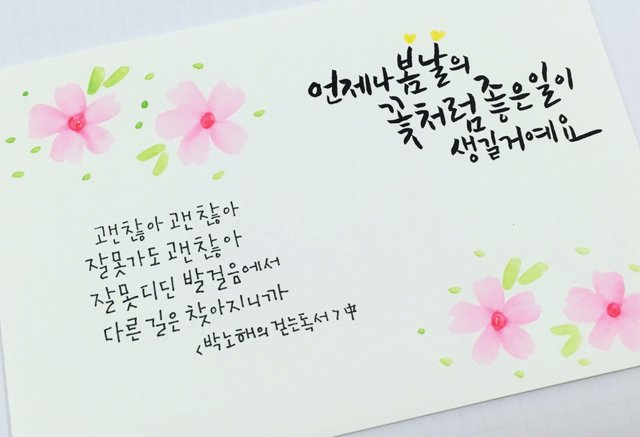 언제나 봄날의
꽃처럼 좋은일이
생길거예요
괜찮아 괜찮아
잘못가도 괜찮아
잘못 디딘 발걸음에서
다른 길은 찾아지니까
<박노해의 걷는독서> 中